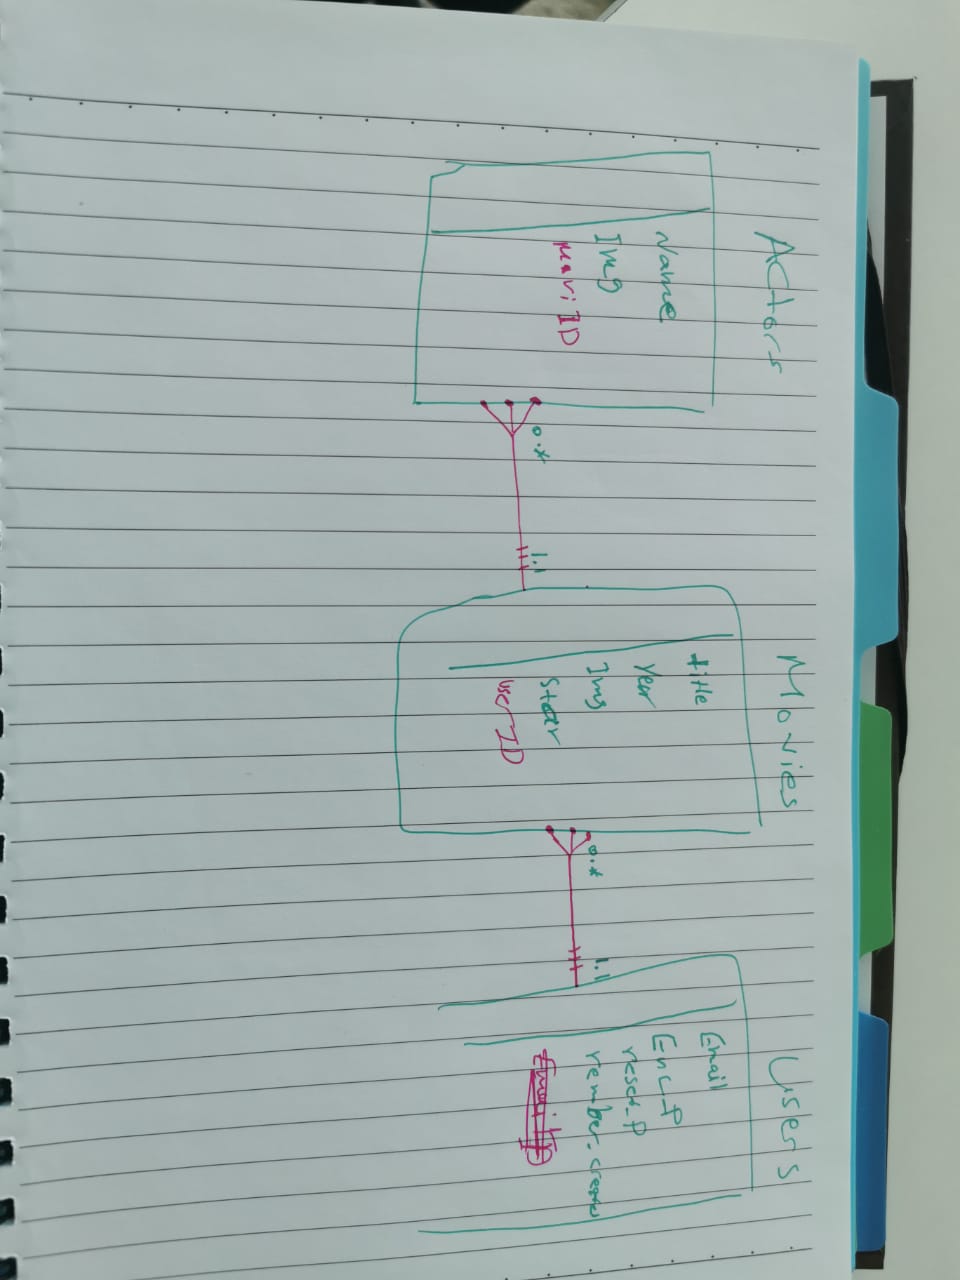 Actors
Name
Img
moviID
0.*
1.1
Movies
title
Year
Img
Star
userID
0.*
1.1
Users
Email
Enc_P
reset_P
rember_created